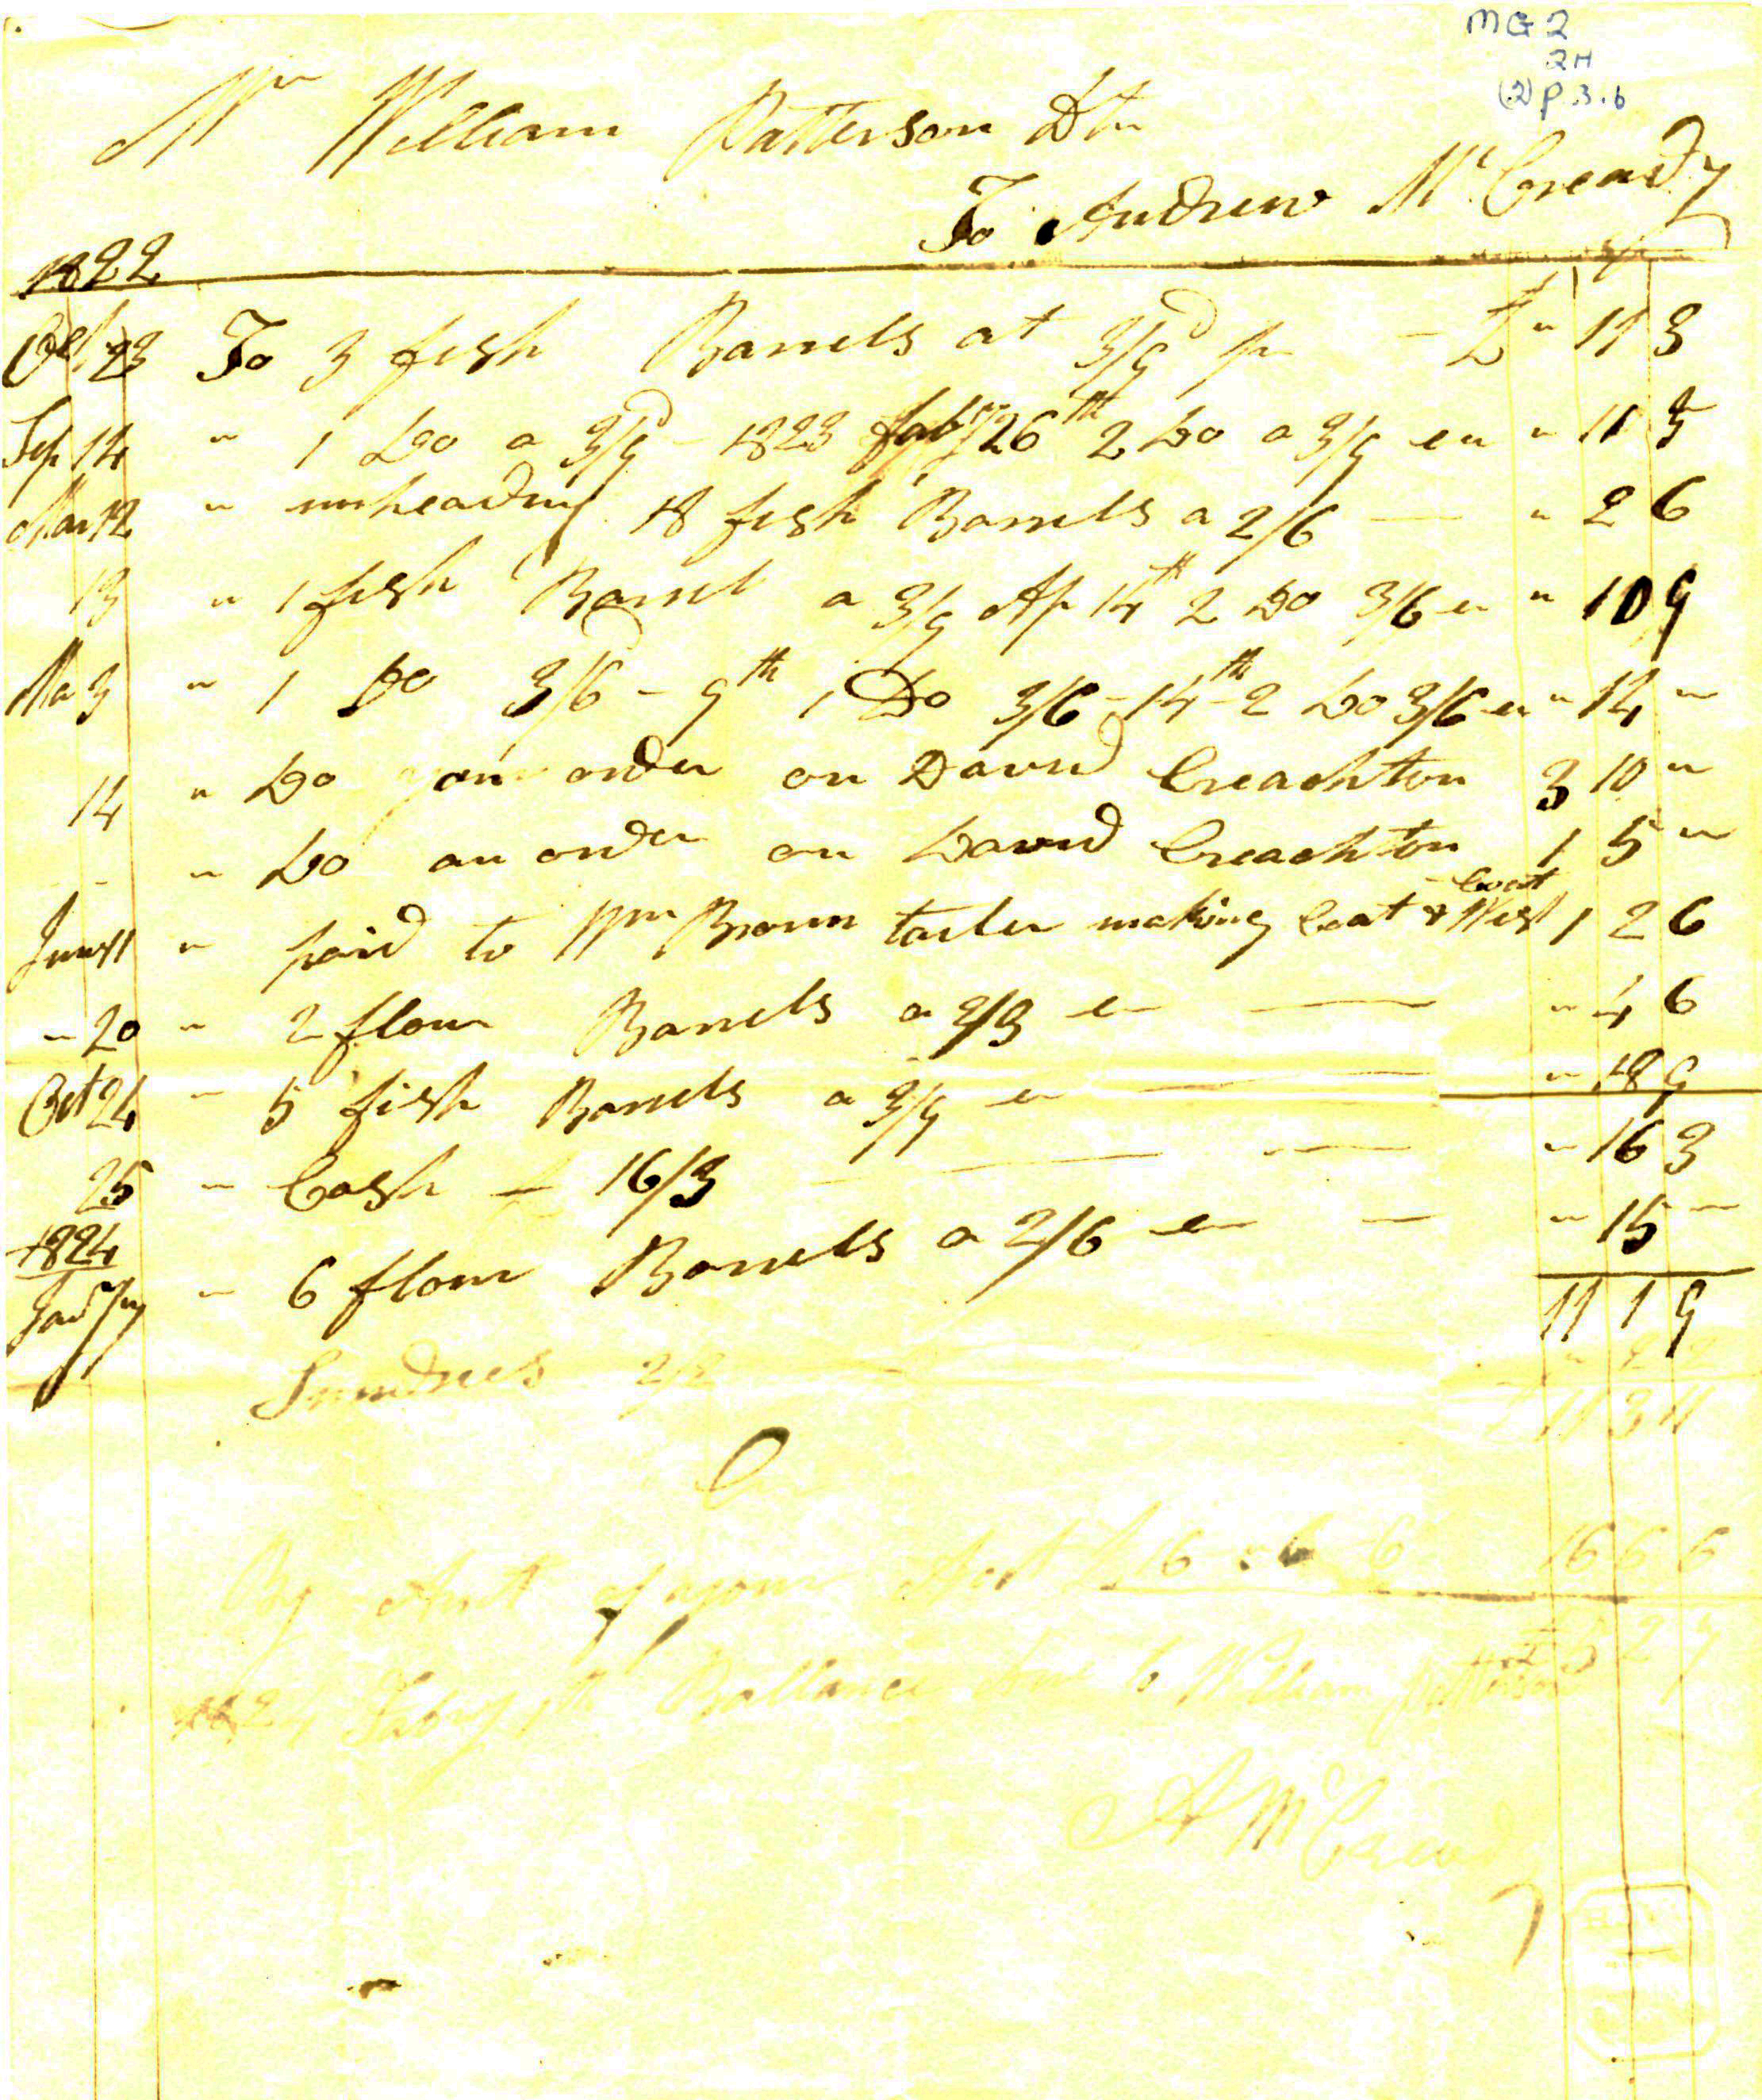 MG 2
2H
(2) p.3.6
Mr William Patterson Dtr
To Andrew McCready
1822
23 To 3 fish Barrels at 3/9d pr - £ " 11 3
Sep 14 " 1 Do a 3/9 - 1823 Febry 26th 2 Do a 3/9 ea " 11 3
Mar 12 " unheading 18 fish Barrels a 2/6 — " 2 6
13 " 1 fish Barrel a 3/9 Ap 14th 2 Do 3/6 ea " 10 9
Ma 3 " 1 Do 3/6 - 9th 1 Do 3/6 - 14th - 2 Do 3/6 ea " 14 "
14 " Do your order on David Creachton 3 10 "
" Do an order on David Creachton 1 5 "
June 11 " paid to Wm Brown tailer making Coat & West 1 2 6
" 20 " 2 flour Barrels a 2/3 ea — " 4 6
Oct 24 " 5 fish Barrels a 3/9 ea — " 18 9
25 " Cash — 16/3 — " 16 3
1824
" 6 flour Barrels a 2/6 ea — " 15 "
11 1 9
Sundries 2/2 — " 2 2
11 3 11
By Amt of your Act £ 16 " 6 " 6 16 6 6
1824 Febry Ballance due to William Patterson £ 5 2 7
A McCready